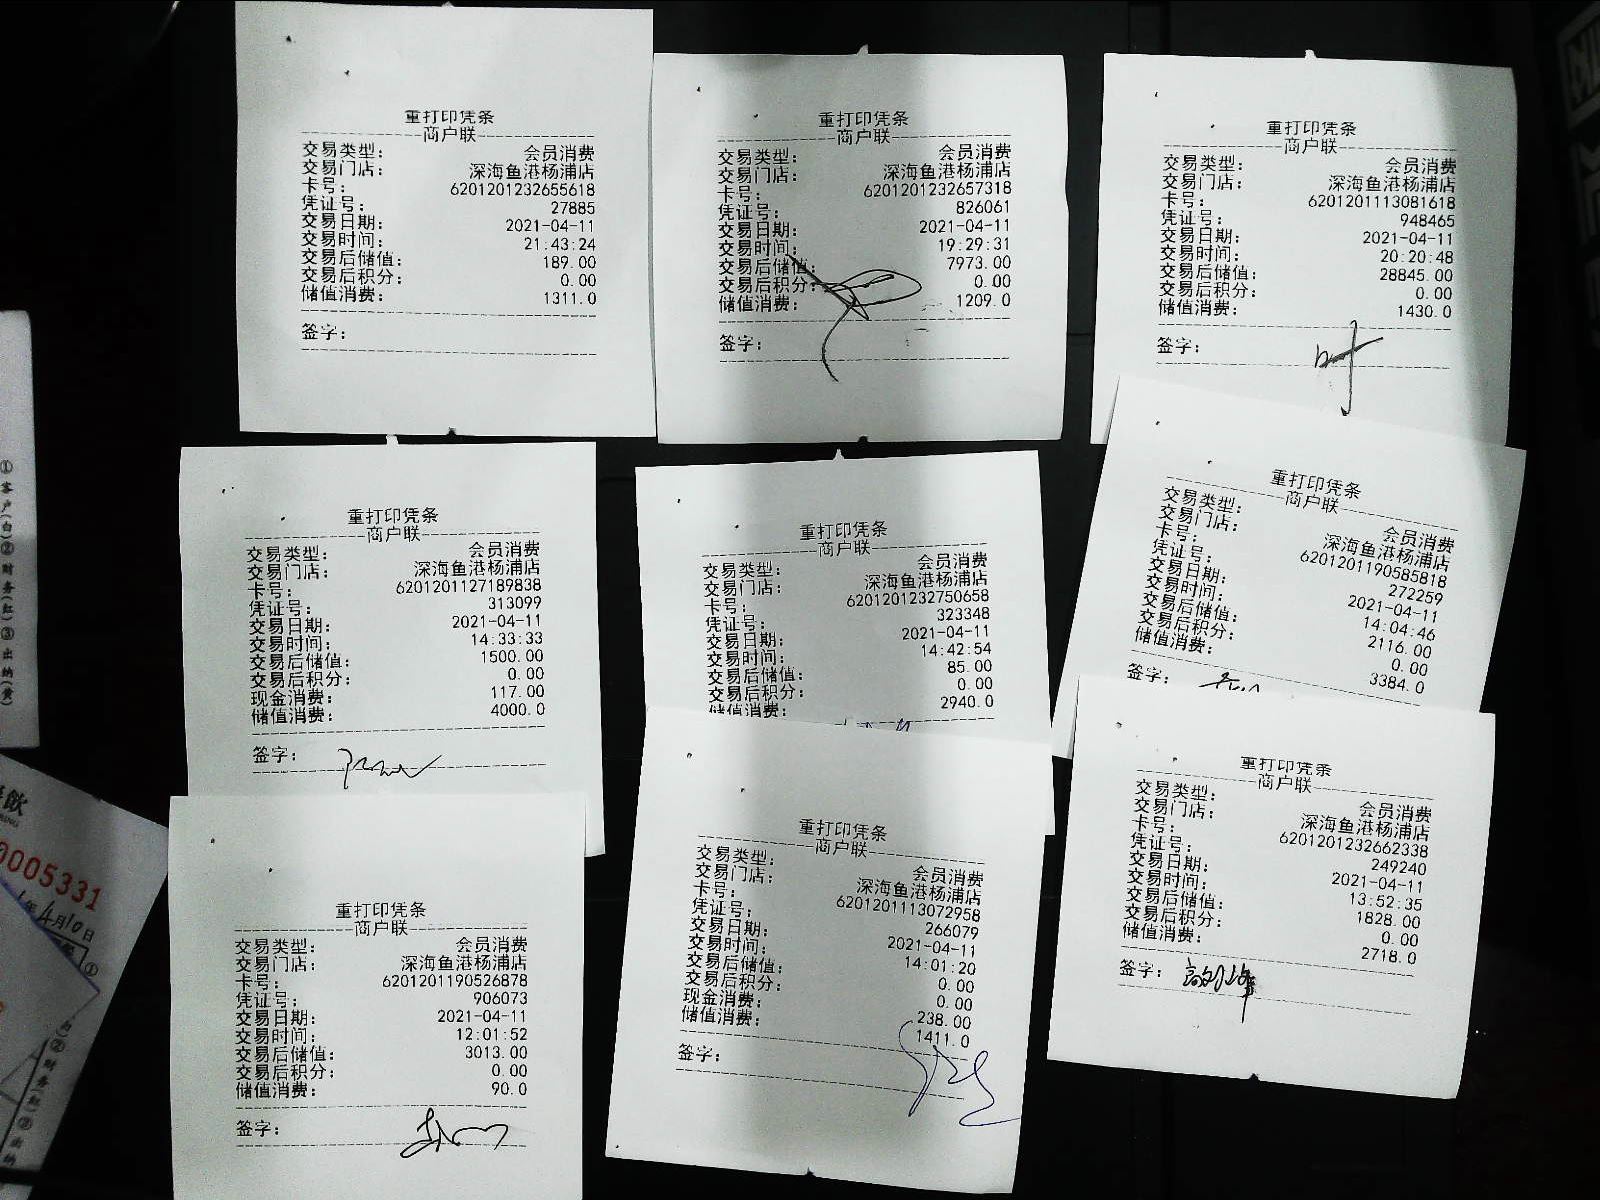 重打印凭条
商户联
交易类型： 会员消费
交易门店： 深海鱼港杨浦店
卡号： 6201201232655618
凭证号： 27885
交易日期： 2021-04-11
交易时间： 21:43:24
交易后储值： 189.00
交易后积分： 0.00
储值消费： 1311.0
签字：
重打印凭条
商户联
交易类型： 会员消费
交易门店： 深海鱼港杨浦店
卡号： 6201201232657318
凭证号： 826061
交易日期： 2021-04-11
交易时间： 19:29:31
交易后储值： 7973.00
交易后积分： 0.00
储值消费： 1209.0
签字：
重打印凭条
商户联
交易类型： 会员消费
交易门店： 深海鱼港杨浦店
卡号： 6201201113081618
凭证号： 948465
交易日期： 2021-04-11
交易时间： 20:20:48
交易后储值： 28845.00
交易后积分： 0.00
储值消费： 1430.0
签字：
重打印凭条
商户联
交易类型： 会员消费
交易门店： 深海鱼港杨浦店
卡号： 6201201127189838
凭证号： 313099
交易日期： 2021-04-11
交易时间： 14:33:33
交易后储值： 1500.00
交易后积分： 0.00
现金消费： 117.00
储值消费： 4000.0
签字：
重打印凭条
商户联
交易类型： 会员消费
交易门店： 深海鱼港杨浦店
卡号： 6201201232750658
凭证号： 323348
交易日期： 2021-04-11
交易时间： 14:42:54
交易后储值： 85.00
交易后积分： 0.00
储值消费： 2940.0
重打印凭条
商户联
交易类型： 会员消费
交易门店： 深海鱼港杨浦店
卡号： 6201201190585818
凭证号： 272259
交易日期： 2021-04-11
交易时间： 14:04:46
交易后储值： 2116.00
交易后积分： 0.00
储值消费： 3384.0
签字：
重打印凭条
商户联
交易类型： 会员消费
交易门店： 深海鱼港杨浦店
卡号： 6201201190526878
凭证号： 906073
交易日期： 2021-04-11
交易时间： 12:01:52
交易后储值： 3013.00
交易后积分： 0.00
储值消费： 90.0
签字：
重打印凭条
商户联
交易类型： 会员消费
交易门店： 深海鱼港杨浦店
卡号： 6201201113072958
凭证号： 266079
交易日期： 2021-04-11
交易时间： 14:01:20
交易后储值： 0.00
交易后积分： 0.00
现金消费： 238.00
储值消费： 1411.0
签字：
重打印凭条
商户联
交易类型： 会员消费
交易门店： 深海鱼港杨浦店
卡号： 6201201232662338
凭证号： 249240
交易日期： 2021-04-11
交易时间： 13:52:35
交易后储值： 1828.00
交易后积分： 0.00
储值消费： 2718.0
签字：
①客户(白)②财务(红)③出纳(黄)
飲
0005331
年4月10日
①
②财务(红)③出纳